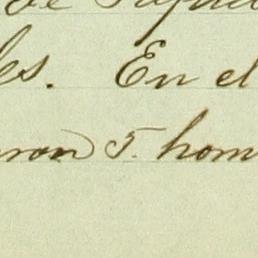 de
es. En el
ron 5. hom